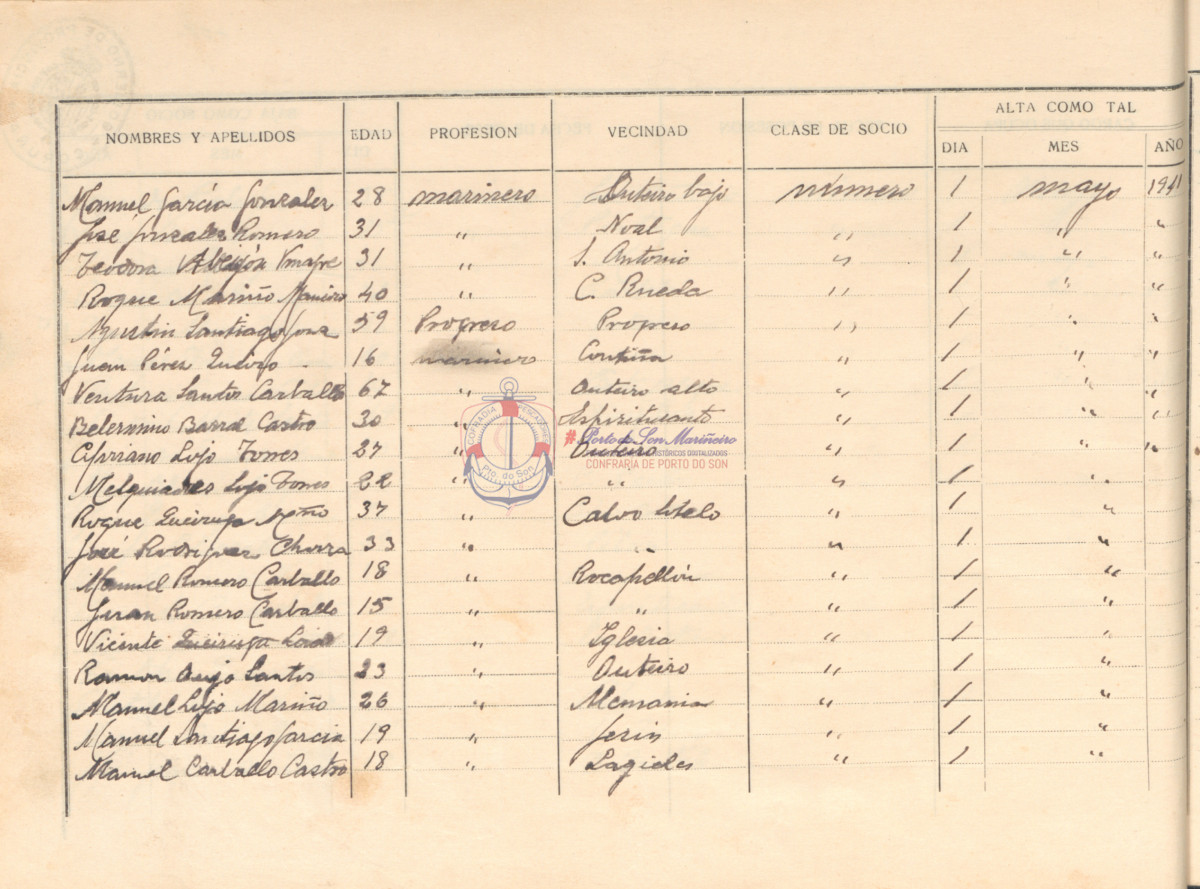 NOMBRES Y APELLIDOS EDAD PROFESION VECINDAD CLASE DE SOCIO ALTA COMO TAL
DIA MES AÑO
Manuel García Gonzalez 28 marinero Outeiro bajo número 1 mayo 1941
José Gonzalez Romero 31 " Noal " 1 " "
Teodora Abeijón 31 " S. Antonio " 1 " "
Roque Mariño 40 " C. Rueda " 1 " "
Agustin Santiago 59 Progreso Progreso " 1 " "
Juan Pérez 16 marinero " 1 " "
Ventura Santos Carballo 67 " Outeiro alto " 1 " "
Belermino Barral Castro 30 " Espiritusanto " 1 " "
Cipriano Lijo Torres 27 " Outeiro " 1 " "
Melquiades Lijo Torres 22 " " " 1 "
Roque Queiruga 37 " Calvo Sotelo " 1 "
José Rodriguez Churra 33 " " " 1 "
Manuel Romero Carballo 18 " Rocapellón " 1 "
Juan Romero Carballo 15 " " " 1 "
Vicente Queiruga 19 " Iglesia " 1 "
Ramon Santos 23 " Outeiro " 1 "
Manuel Lijo Mariño 26 " " 1 "
Manuel Santiago Garcia 19 " " 1 "
Manuel Carballo Castro 18 " " 1 "
COFRADIA PESCADORES
Pto. do Son
#Porto do Son Mariñeiro
HISTÓRICOS DIXITALIZADOS
CONFRARIA DE PORTO DO SON